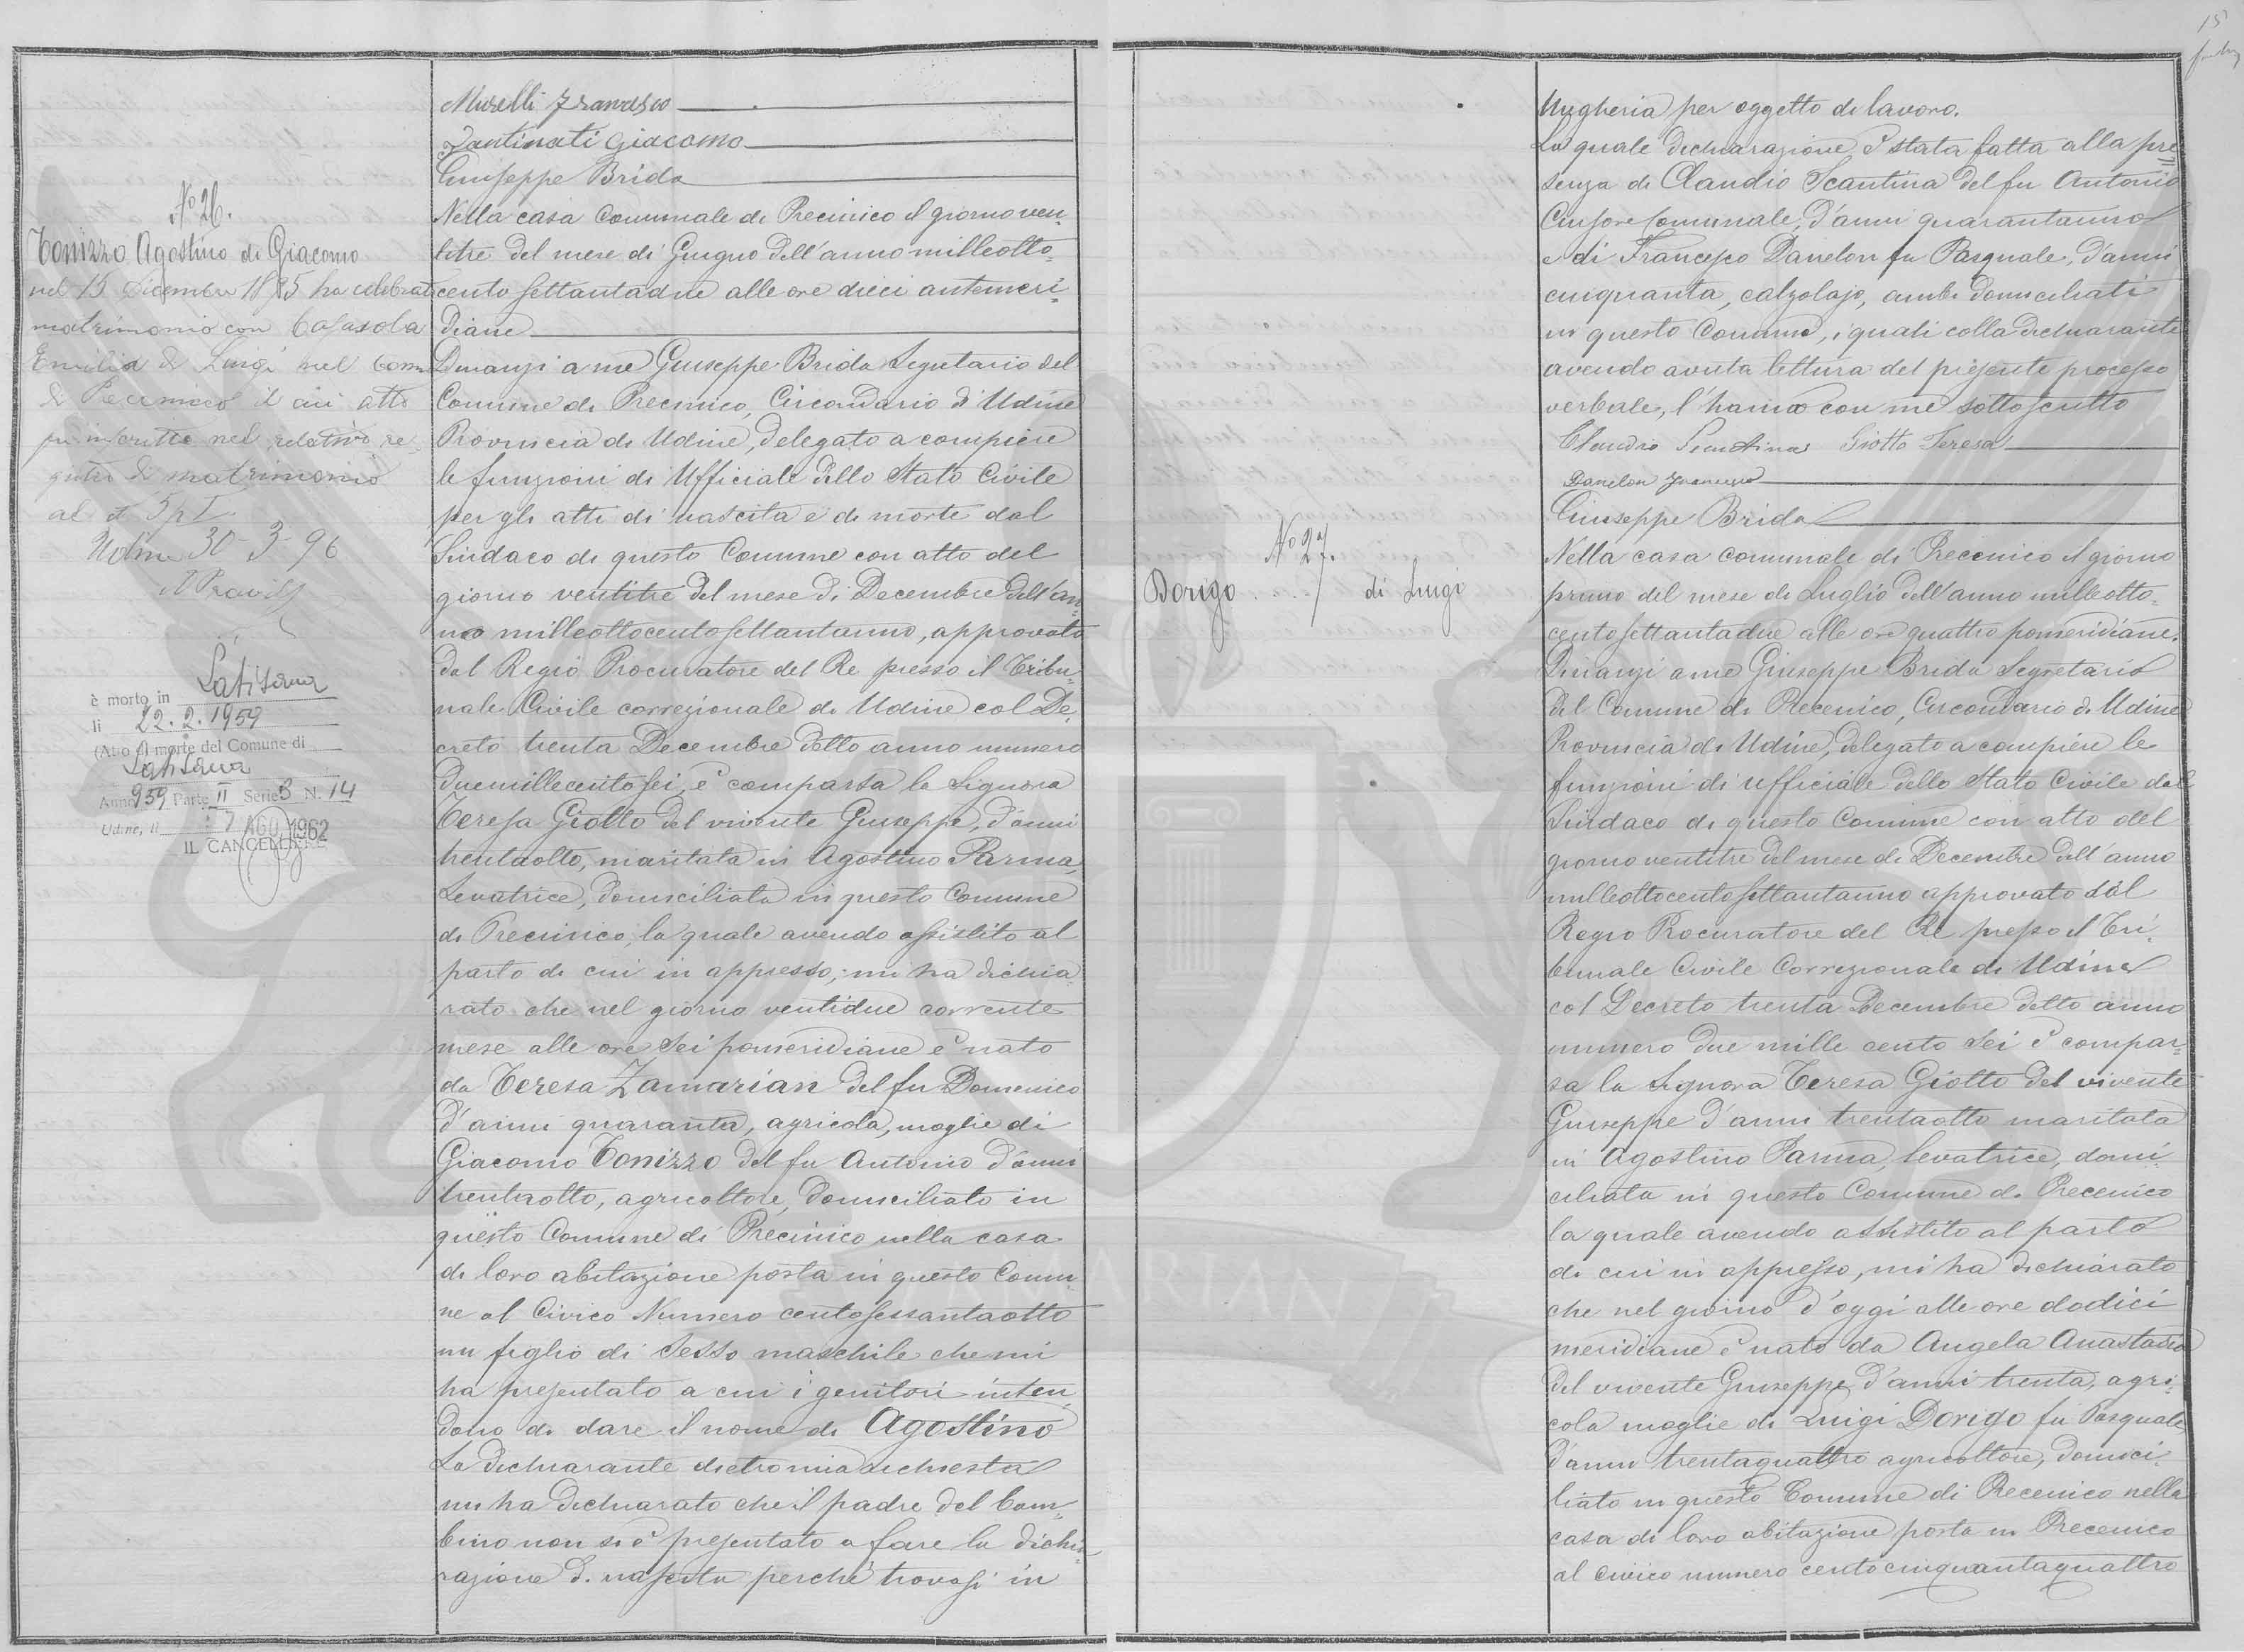 Murelli Francesco
Zantinati Giacomo
Giuseppe Brida
No 26.
Tonizzo Agostino di Giacomo
nel 15 Dicembre 1895 ha celebrato
matrimonio con Casasola
Emilia di Luigi nel Com
di Precenico il cui atto
fu inscritto nel relativo re-
gistro di matrimonio
al N 5 p I
Udine 30-3-96
è morto in Latisana
li 22.2.1959
(Atto di morte del Comune di
Latisana
Anno 959 Parte II Serie B N. 14
Udine, li 7 AGO. 1962
IL CANCELLIERE
Nella casa Comunale di Precinico il giorno ven-
titre del mese di Giugno dell'anno milleotto-
cento settantadue alle ore dieci antimeri-
diane
Dinanzi a me Giuseppe Brida Segretario del
Comune di Precinico, Circondario di Udine
Provincia di Udine, delegato a compiere
le funzioni di Ufficiale dello Stato Civile
per gli atti di nascita e di morte dal
Sindaco di questo Comune con atto del
giorno ventitre del mese di Decembre dell'an-
no milleottocento settantanno, approvato
dal Regio Procuratore del Re presso il Tribu-
nale Civile correzionale di Udine col De-
creto trenta Decembre detto anno numero
duemillecento sei, è comparsa la Signora
Teresa Giotto del vivente Giuseppe, d'anni
trentaotto, maritata in Agostino Parma,
Levatrice, domiciliata in questo Comune
di Precinico, la quale avendo assistito al
parto di cui in appresso, mi ha dichia-
rato che nel giorno ventidue corrente
mese alle ore sei pomeridiane è nato
da Teresa Zamarian del fu Domenico
d'anni quaranta, agricola, moglie di
Giacomo Tonizzo del fu Antonio d'anni
trentaotto, agricoltore, domiciliato in
questo Comune di Precinico nella casa
di loro abitazione posta in questo Comu-
ne al Civico Numero centosessantaotto
un figlio di sesso maschile che mi
ha presentato a cui i genitori inten-
dono di dare il nome di Agostino
La dichiarante dietro mia richiesta
mi ha dichiarato che il padre del bam-
bino non si è presentato a fare la dichia-
razione di nascita perchè trovasi in
15
Ungheria per oggetto di lavoro.
La quale dichiarazione è stata fatta alla pre-
senza di Claudio Scantina del fu Antonio
Cursore Comunale, d'anni quarantanno
e di Francesco Danelon fu Pasquale, d'anni
cinquanta, calzolajo, ambi domiciliati
in questo Comune, i quali colla dichiarante
avendo avuta lettura del presente processo
verbale, l'hanno con me sottoscritto
Claudio Scantina Giotto Teresa
Danelon Francesco
Giuseppe Brida
No 27.
Dorigo di Luigi
Nella casa comunale di Precenico il giorno
primo del mese di Luglio dell'anno milleotto-
cento settantadue alle ore quattro pomeridiane.
Dinanzi a me Giuseppe Brida Segretario
del Comune di Precenico, Circondario di Udine
Provincia di Udine, delegato a compiere le
funzioni di ufficiale dello Stato Civile dal
Sindaco di questo Comune con atto del
giorno ventitre del mese di Decembre dell'anno
milleottocento settantanno approvato dal
Regio Procuratore del Re presso il Tri-
bunale Civile Correzionale di Udine
col Decreto trenta Decembre detto anno
numero due mille cento sei è compar-
sa la Signora Teresa Giotto del vivente
Giuseppe d'anni trentaotto maritata
in Agostino Parma, levatrice, domi-
ciliata in questo Comune di Precenico
la quale avendo assistito al parto
di cui in appresso, mi ha dichiarato
che nel giorno d'oggi alle ore dodici
meridiane è nato da Angela Anastasia
del vivente Giuseppe, d'anni trenta, agri-
cola moglie di Luigi Dorigo fu Pasquale
d'anni trentaquattro agricoltore, domici-
liato in questo Comune di Precenico nella
casa di loro abitazione posta in Precenico
al civico numero centocinquantaquattro